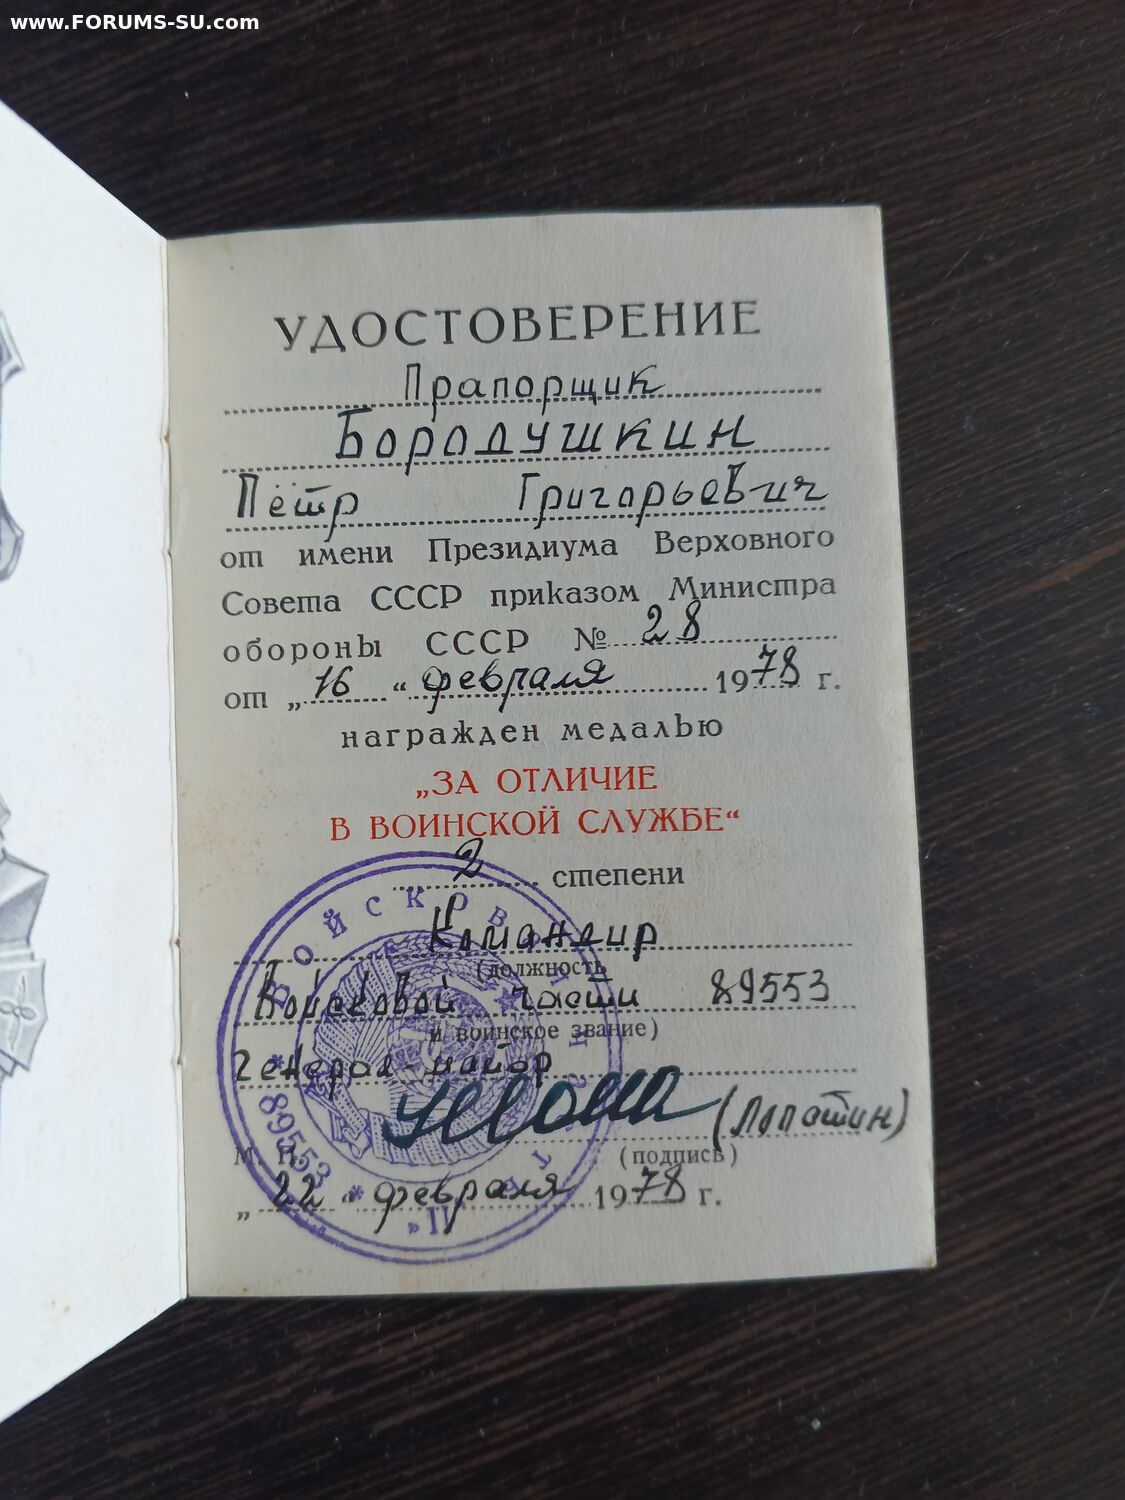 www.FORUMS-SU.com
УДОСТОВЕРЕНИЕ
Прапорщик
Бородушкин
Пётр Григорьевич
от имени Президиума Верховного
Совета СССР приказом Министра
обороны СССР № 28
от „16“ февраля 1978 г.
награжден медалью
„ЗА ОТЛИЧИЕ
В ВОИНСКОЙ СЛУЖБЕ“
2 степени
Командир
(должность
Войсковой части 89553
и воинское звание)
Генерал-майор
(Лопатин)
М. П. (подпись)
„22“ февраля 1978 г.
* ВОЙСКОВАЯ ЧАСТЬ * 89553 *
„II“